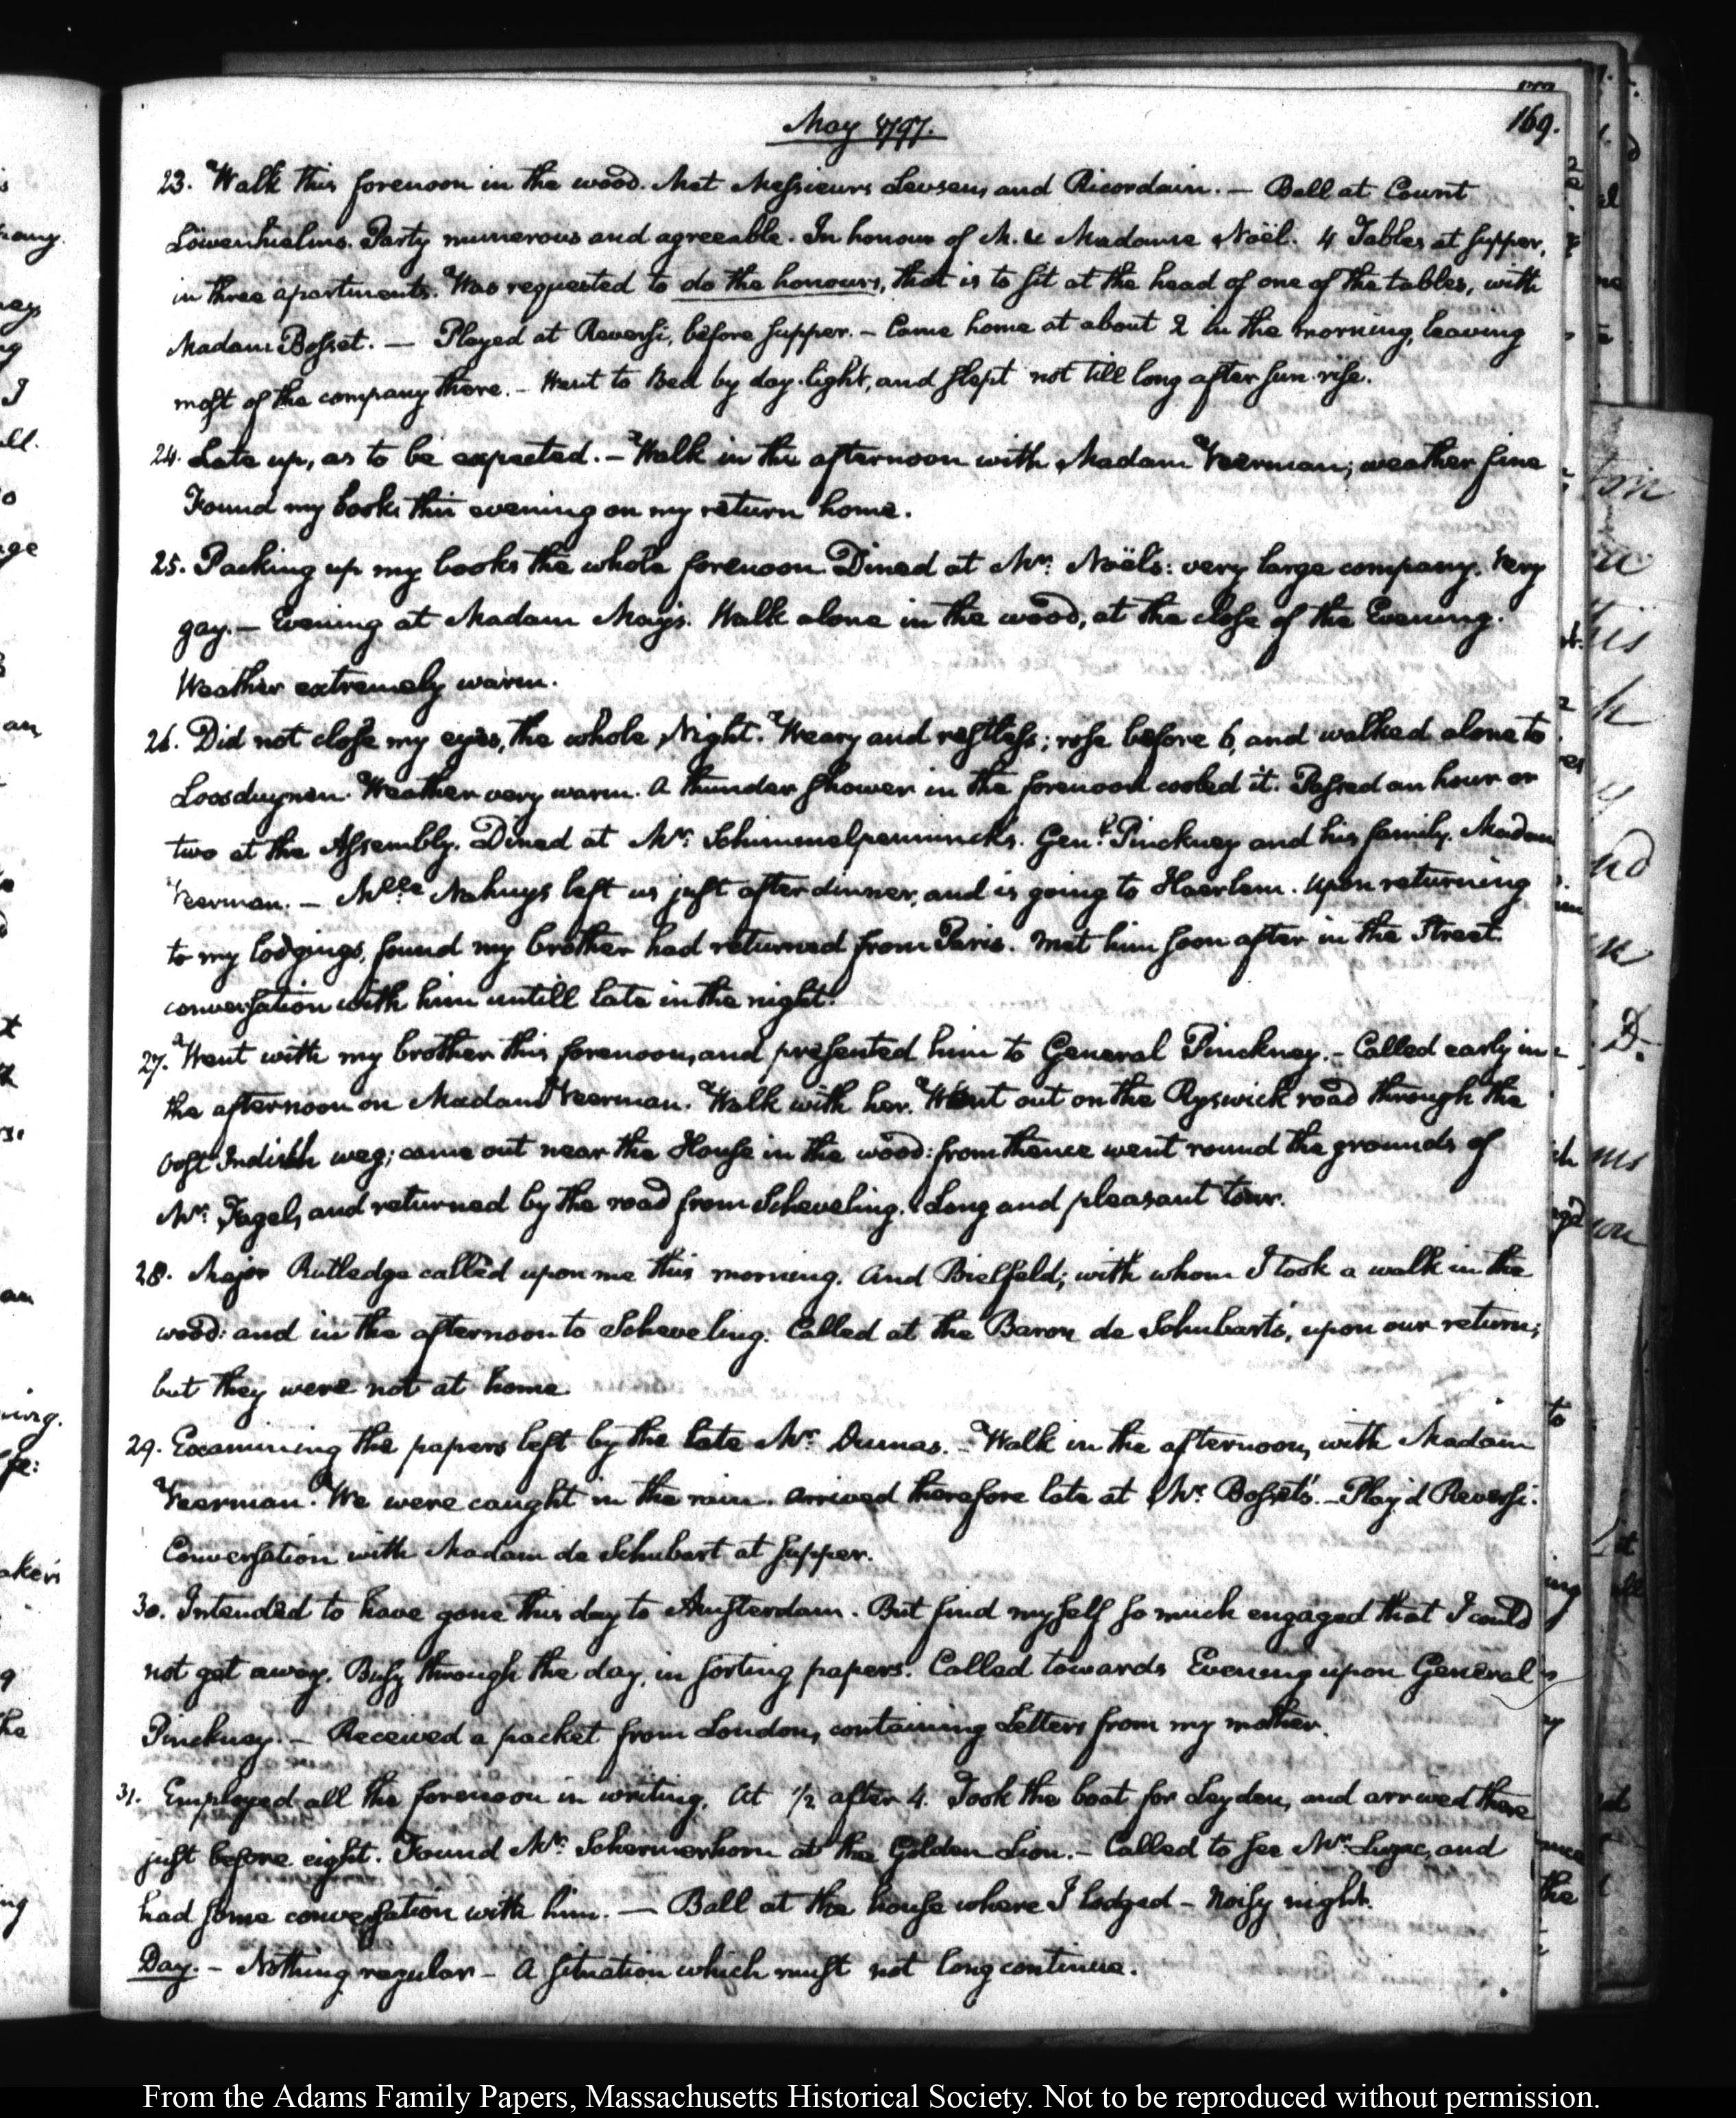 May 1797.
169.
23. Walk this forenoon in the wood. Met Messieurs Levsen, and Ricordain. — Ball at Count
Löwenhielms. Party numerous and agreeable. In honour of M. & Madame Noël. 4 Tables at supper,
in three apartments. Was requested to do the honours, that is to sit at the head of one of the tables, with
Madam Bosset. — Played at Reversi, before supper. — Came home at about 2 in the morning, leaving
most of the company there. — Went to Bed by day-light, and slept not till long after sun-rise.
24. Late up, as to be expected. — Walk in the afternoon with Madam Veerman; weather fine
Found my books this evening on my return home.
25. Packing up my books the whole forenoon. Dined at Mr: Noël's: very large company. Very
gay. — Evening at Madam May's. Walk alone in the wood, at the close of the Evening.
Weather extremely warm.
26. Did not close my eyes, the whole Night. Weary and restless; rose before 6, and walked alone to
Loosduynen. Weather very warm. A thunder shower in the forenoon cooled it. Passed an hour or
two at the Assembly. Dined at Mr: Schimmelpennincks. Genl: Pinckney and his family. Madam
Veerman. — Mlle Nahuys left us just after dinner, and is going to Haerlem. Upon returning
to my lodgings, found my brother had returned from Paris. Met him soon after in the Street.
conversation with him untill late in the night.
27. Went with my brother this forenoon, and presented him to General Pinckney. — Called early in
the afternoon on Madam Veerman. Walk with her. Went out on the Ryswick road through the
Oost Indisch weg; came out near the House in the wood: from thence went round the grounds of
Mr: Fagel, and returned by the road from Scheveling. Long and pleasant tour.
28. Major Rutledge called upon me this morning. And Bielfeld; with whom I took a walk in the
wood: and in the afternoon to Scheveling. Called at the Baron de Schubart's, upon our return;
but they were not at home.
29. Examining the papers left by the late Mr: Dumas. — Walk in the afternoon, with Madam
Veerman. We were caught in the rain. arrived therefore late at Mr: Bosset's. — Play'd Reversi.
Conversation with Madam de Schubart at supper.
30. Intended to have gone this day to Amsterdam. But find myself so much engaged that I could
not get away. Busy through the day, in sorting papers. Called towards Evening upon General
Pinckney. — Received a packet from London, containing Letters from my mother.
31. Employed all the forenoon in writing. At 1/2 after 4. Took the boat for Leyden, and arrived there
just before eight. Found Mr: Schermerhorn at the Golden Lion. — Called to see Mr: Luzac, and
had some conversation with him. — Ball at the house where I lodged — Noisy night.
Day. — Nothing regular — A situation which must not long continue.
From the Adams Family Papers, Massachusetts Historical Society. Not to be reproduced without permission.